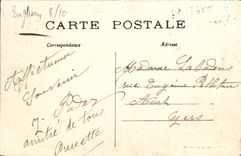 Enghien 8/10
CARTE POSTALE
Correspondance
Adresse
Affectueux
Souvenir
amitié de tous
Annette
Madame Labadens
rue Eugène Pelletan
Auch
Gers